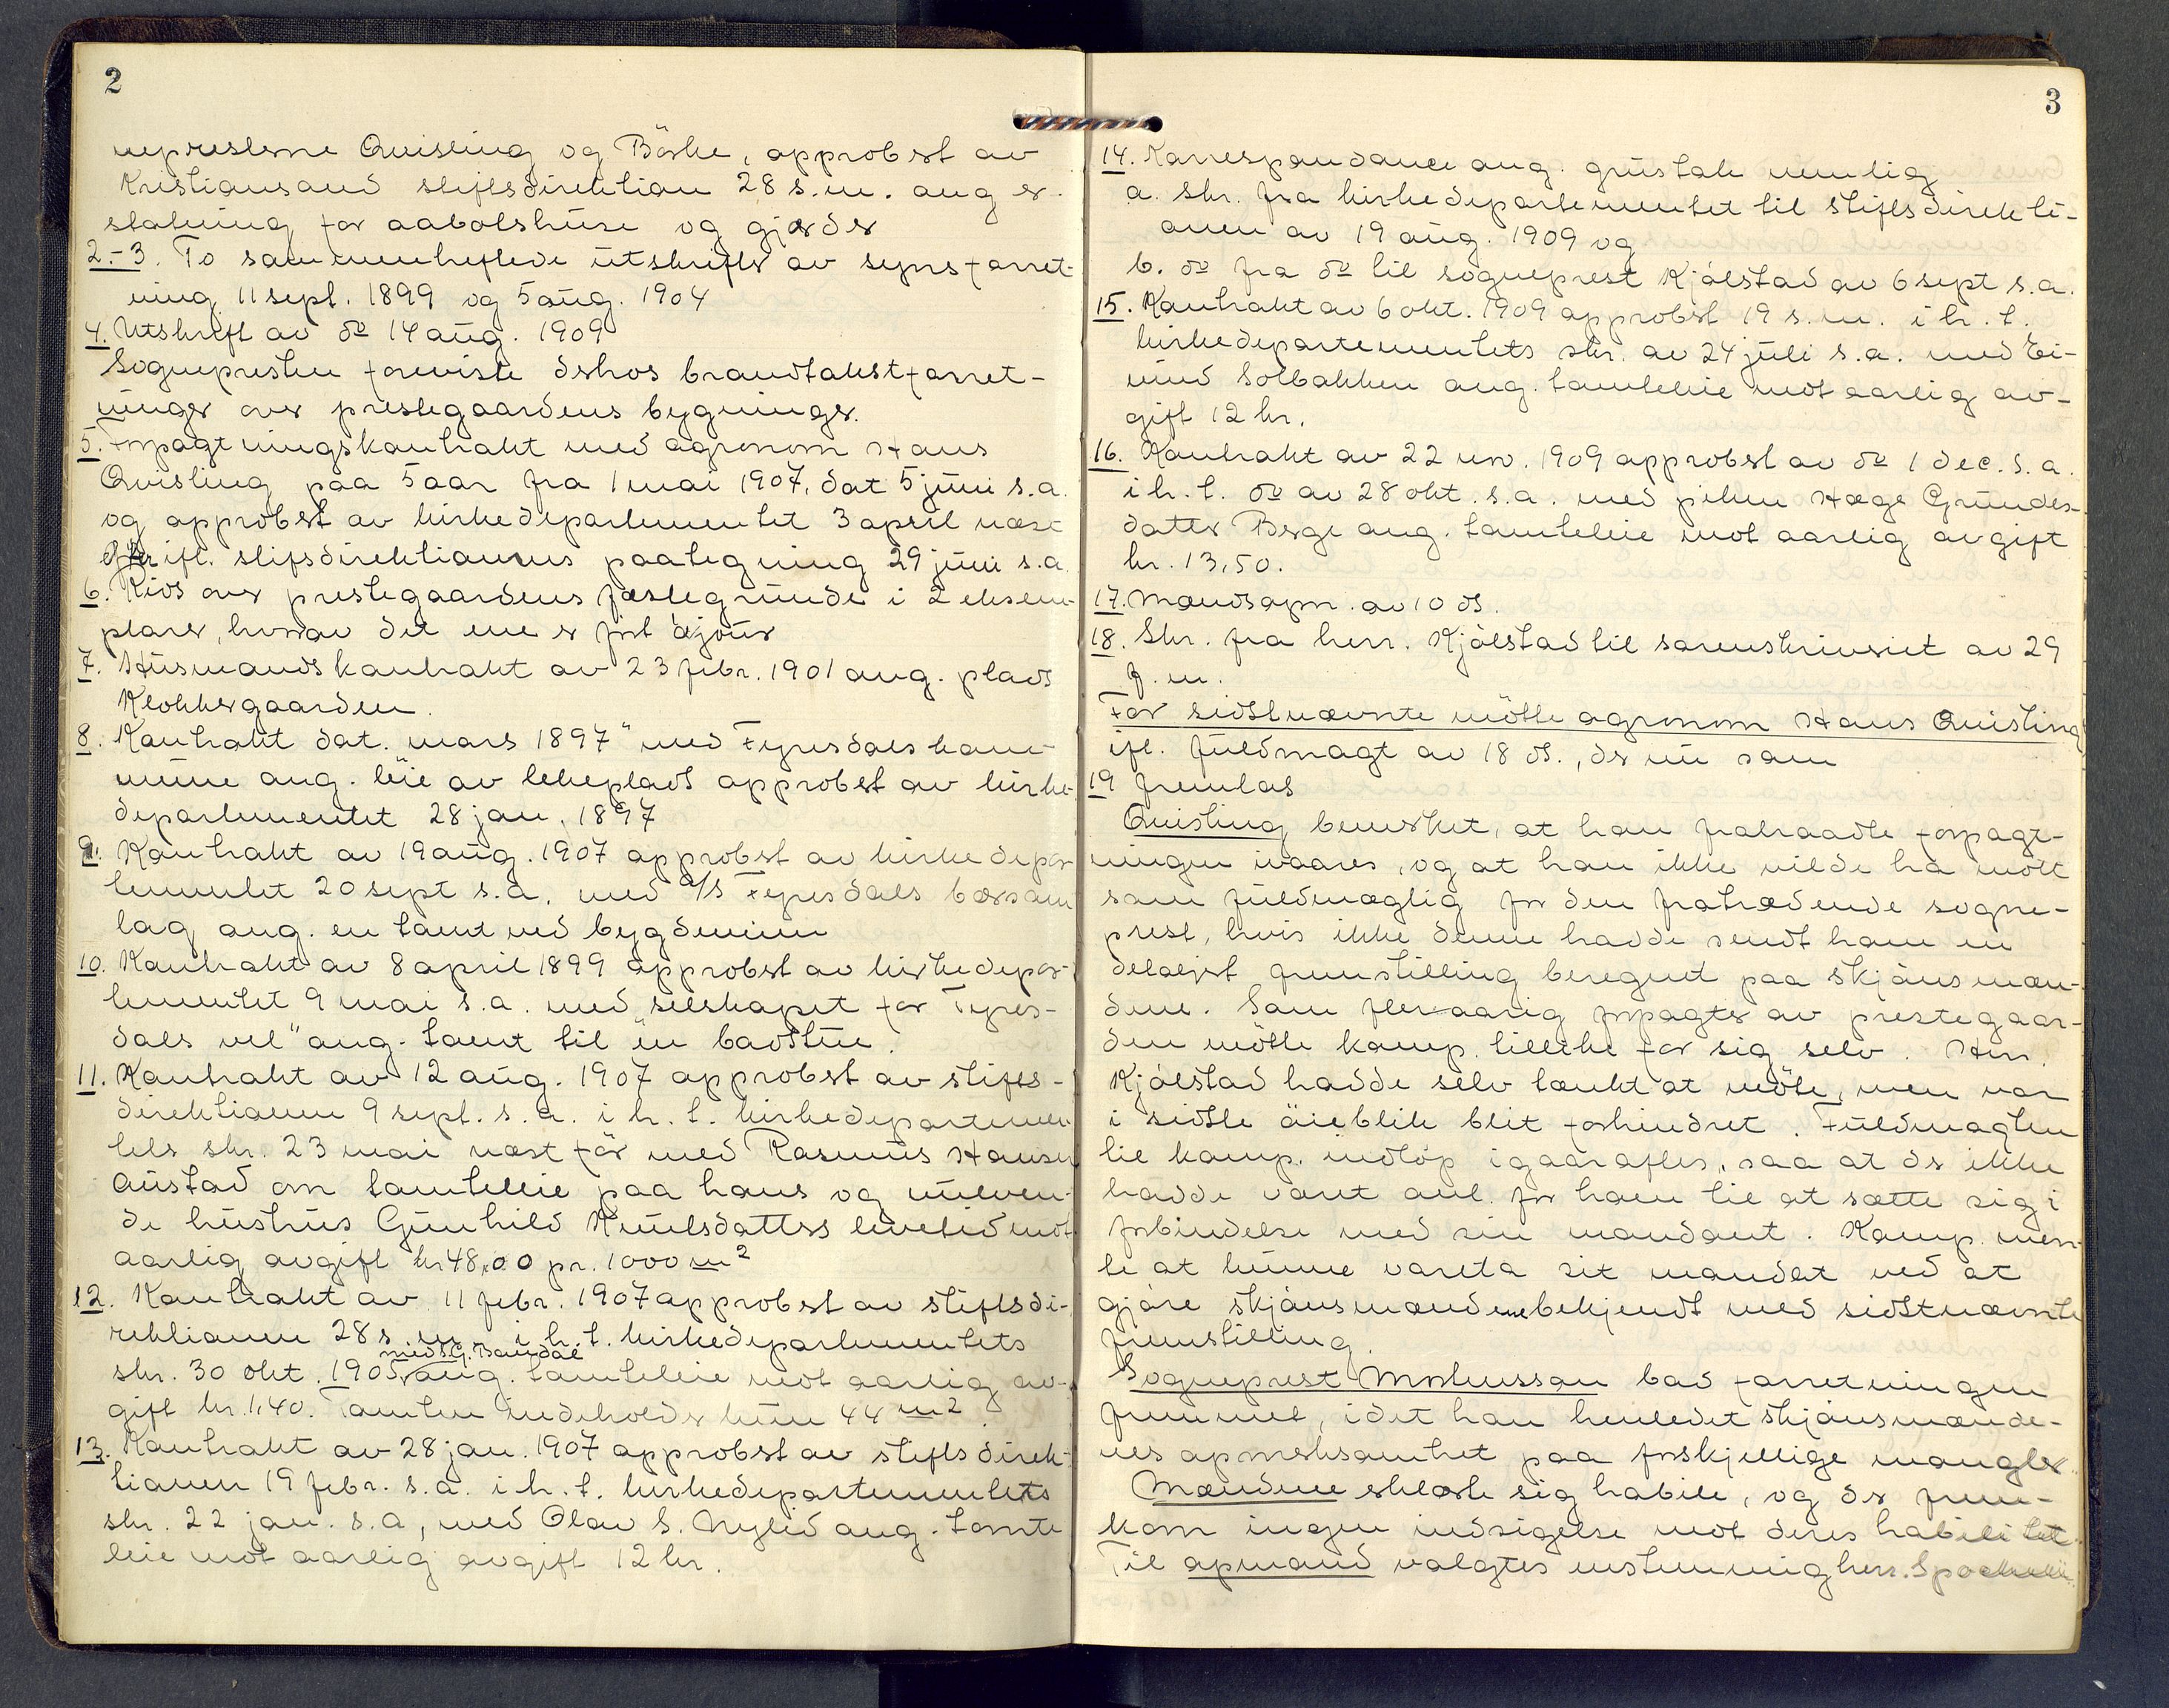 2
neprestene Qvisling og Börke, approbert av
Kristiansand stiftsdirektion 28 s.m. ang er-
statning for aabotshuse og gjerder
2.-3. To sammenheftede utskrifter av synsforret-
ning 11 sept. 1899 og 5 aug. 1904
4. Utskrift av do 14 aug. 1909
Sognepresten foreviste derhos brandtakstforret-
ninger over prestegaardens bygninger.
5. Forpagtningskontrakt med agronom Hans
Qvisling paa 5 aar fra 1 mai 1907, dat 5 juni s.a.
og approbert av kirkedepartementet 3 april næst
efter ifl. stiftsdirektionens paategning 29 juni s.a.
6. Rids over prestegaardens fæstegrunde i 2 eksem-
plarer, hvorav det ene er ført àjour
7. Husmandskontrakt av 23 febr. 1901 ang. plads
Klokkergaarden.
8. Kontrakt dat. "mars 1897" med Fyresdals kom-
mune ang. leie av lekeplads approbert av kirke-
departementet 28 jan. 1897
9. Kontrakt av 19 aug. 1907 approbert av kirkedepar-
tementet 20 sept s.a. med A/S Fyresdals borsam
lag ang. en tomt ved bygdeveien
10. Kontrakt av 8 april 1899 approbert av kirkedepar-
tementet 9 mai s.a. med "selskapet for Fyres-
dals vel" ang. tomt til en badstue.
11. Kontrakt av 12 aug. 1907 approbert av stifts-
direktionen 9 sept. s.a. i h. t. kirkedepartemen
tets skr. 23 mai næst før med Rasmus Hansen
Austad om tomteleie paa hans og nulven-
de hustrus Gunhild Knutsdatters levetid mot
aarlig avgift kr 48,00 pr. 1000 m2
12. Kontrakt av 11 febr. 1907 approbert av stiftsdi-
rektionen 28 s.m. i h. t. kirkedepartementets
med G. Bandal
skr. 30 okt. 1905 ang. tomteleie mot aarlig av-
gift kr. 1,40. Tomten indeholder kun 44 m2.
13. Kontrakt av 28 jan. 1907 approbert av stiftsdirek-
tionen 19 febr. s.a. i h. t. kirkedepartementets
skr. 22 jan. s.a, med Olav S. Nylid ang. tomte
leie mot aarlig avgift 12 kr.
3
14. Korrespondance ang. grustak nemlig
a. skr. fra kirkedepartementet til stiftsdirekti-
onen av 19 aug. 1909 og
b. do fra do til sogneprest Kjølstad av 6 sept s.a.
15. Kontrakt av 6 okt. 1909 approbert 19 s.m. i h. t.
kirkedepartementets skr. av 24 juli s.a. med Ei-
vind Solbakken ang. tomteleie mot aarlig av-
gift 12 kr.
16. Kontrakt av 22 nov. 1909 approbert av do 1 dec. s.a.
i h. t. do av 28 okt. s.a. med piken Hæge Grundes-
datter Berge ang. tomteleie mot aarlig avgift
kr. 13,50.
17. Mandsopn. av 10 ds.
18. Skr. fra herr. Kjølstad til sorenskriveriet av 29
f.m.
For sidstnævnte mötte agronom Hans Qvisling
ifl. fuldmagt av 18 ds., der nu som
19 fremlas
Qvisling bemerket, at han fratraadte forpagt-
ningen ivaares, og at han ikke vilde ha mött
som fuldmægtig for den fratrædende sogne-
prest, hvis ikke denne hadde sendt ham en
detaljert fremstilling beregnet paa skjönsmæn-
dene. Som fleraarig forpagter av prestegaar-
den mötte komp. tillike for sig selv. Herr.
Kjølstad hadde selv tænkt at möte, men var
i sidste öieblik blit forhindret. Fuldmagten
til komp. indløp igaaraftes, saa at der ikke
hadde været anl. for ham til at sætte sig i
forbindelse med sin mandant. Komp. men-
te at kunne vareta sit mandat ved at
gjøre skjönsmændene bekjendt med sidstnævnte
fremstilling.
Sogneprest Markussen bad forretningen
fremmet, idet han henledet skjönsmænde-
nes opmerksomhet paa forskjellige mangler.
Mændene erklærte sig habile, og der frem-
kom ingen indsigelse mot deres habilitet.
Til opmand valgtes enstemmig herr.